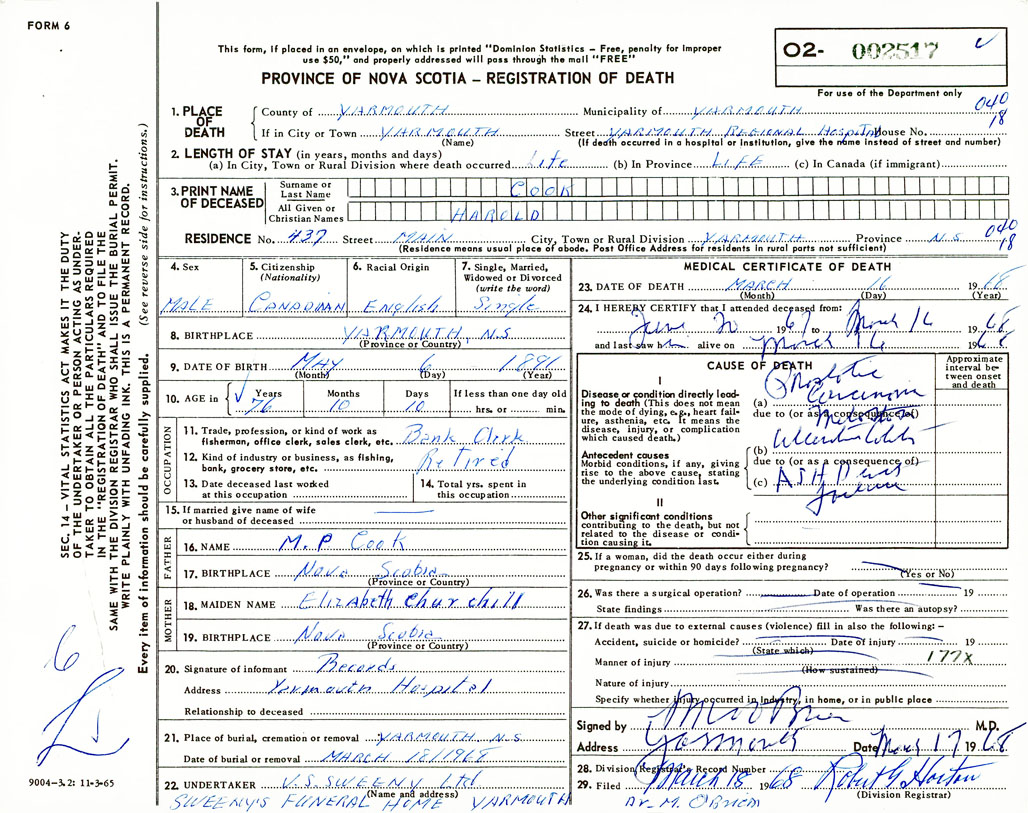 FORM 6
This form, if placed in an envelope, on which is printed "Dominion Statistics – Free, penalty for improper
use $50," and properly addressed will pass through the mail "FREE"
PROVINCE OF NOVA SCOTIA – REGISTRATION OF DEATH
O2- 002517
For use of the Department only
040
18
1. PLACE OF DEATH
County of YARMOUTH Municipality of YARMOUTH
If in City or Town YARMOUTH Street YARMOUTH REGIONAL HOSPITAL House No.
(Name) (If death occurred in a hospital or institution, give the name instead of street and number)
2. LENGTH OF STAY (in years, months and days)
(a) In City, Town or Rural Division where death occurred Life (b) In Province LIFE (c) In Canada (if immigrant)
3. PRINT NAME OF DECEASED
Surname or Last Name COOK
All Given or Christian Names HAROLD
RESIDENCE No. 437 Street MAIN City, Town or Rural Division YARMOUTH Province N S
040
18
(Residence means usual place of abode. Post Office Address for residents in rural parts not sufficient)
4. Sex
MALE
5. Citizenship
(Nationality)
CANADIAN
6. Racial Origin
English
7. Single, Married,
Widowed or Divorced
(write the word)
Single
8. BIRTHPLACE YARMOUTH, N.S
(Province or Country)
9. DATE OF BIRTH MAY 6 1891
(Month) (Day) (Year)
10. AGE in Years Months Days If less than one day old
76 10 10 hrs. or min.
OCCUPATION
11. Trade, profession, or kind of work as
fisherman, office clerk, sales clerk, etc. Bank Clerk
12. Kind of industry or business, as fishing,
bank, grocery store, etc. Retired
13. Date deceased last worked
at this occupation
14. Total yrs. spent in
this occupation
15. If married give name of wife
or husband of deceased
FATHER
16. NAME M. P Cook
17. BIRTHPLACE Nova Scotia
(Province or Country)
MOTHER
18. MAIDEN NAME Elizabeth Churchill
19. BIRTHPLACE Nova Scotia
(Province or Country)
20. Signature of informant Records
Address Yarmouth Hospital
Relationship to deceased
21. Place of burial, cremation or removal YARMOUTH N.S
Date of burial or removal MARCH 18/1968
22. UNDERTAKER V.S. SWEENY Ltd
(Name and address)
SWEENY'S FUNERAL HOME YARMOUTH
MEDICAL CERTIFICATE OF DEATH
23. DATE OF DEATH MARCH 16 1968
(Month) (Day) (Year)
24. I HEREBY CERTIFY that I attended deceased from:
June 20 1967 to March 16 1968
and last saw him alive on March 16 1968
CAUSE OF DEATH
Approximate
interval be-
tween onset
and death
I
Disease or condition directly lead-
ing to death (This does not mean
the mode of dying, e.g., heart fail-
ure, asthenia, etc. It means the
disease, injury, or complication
which caused death.)
(a) Prostatic Carcinoma
due to (or as a consequence of)
Antecedent causes
Morbid conditions, if any, giving
rise to the above cause, stating
the underlying condition last.
(b)
due to (or as a consequence of)
(c) A S H D
II
Other significant conditions
contributing to the death, but not
related to the disease or condi-
tion causing it.
25. If a woman, did the death occur either during
pregnancy or within 90 days following pregnancy?
(Yes or No)
26. Was there a surgical operation? Date of operation 19
State findings Was there an autopsy?
27. If death was due to external causes (violence) fill in also the following: –
Accident, suicide or homicide? Date of injury 19
(State which)
177X
Manner of injury
(How sustained)
Nature of injury
Specify whether injury occurred in Industry, in home, or in public place
Signed by M O'Brien M.D.
Address Yarmouth Date March 17 1968
28. Division Registrar's Record Number
29. Filed March 18 1968 Robert G Horton
(Division Registrar)
Dr. M. O'Brien
SEC. 14 – VITAL STATISTICS ACT MAKES IT THE DUTY
OF THE UNDERTAKER OR PERSON ACTING AS UNDER-
TAKER TO OBTAIN ALL THE PARTICULARS REQUIRED
IN THE "REGISTRATION OF DEATH" AND TO FILE THE
SAME WITH THE DIVISION REGISTRAR WHO SHALL ISSUE THE BURIAL PERMIT.
WRITE PLAINLY WITH UNFADING INK. THIS IS A PERMANENT RECORD.
Every item of information should be carefully supplied. (See reverse side for instructions.)
6
9004-3.2: 11-3-65